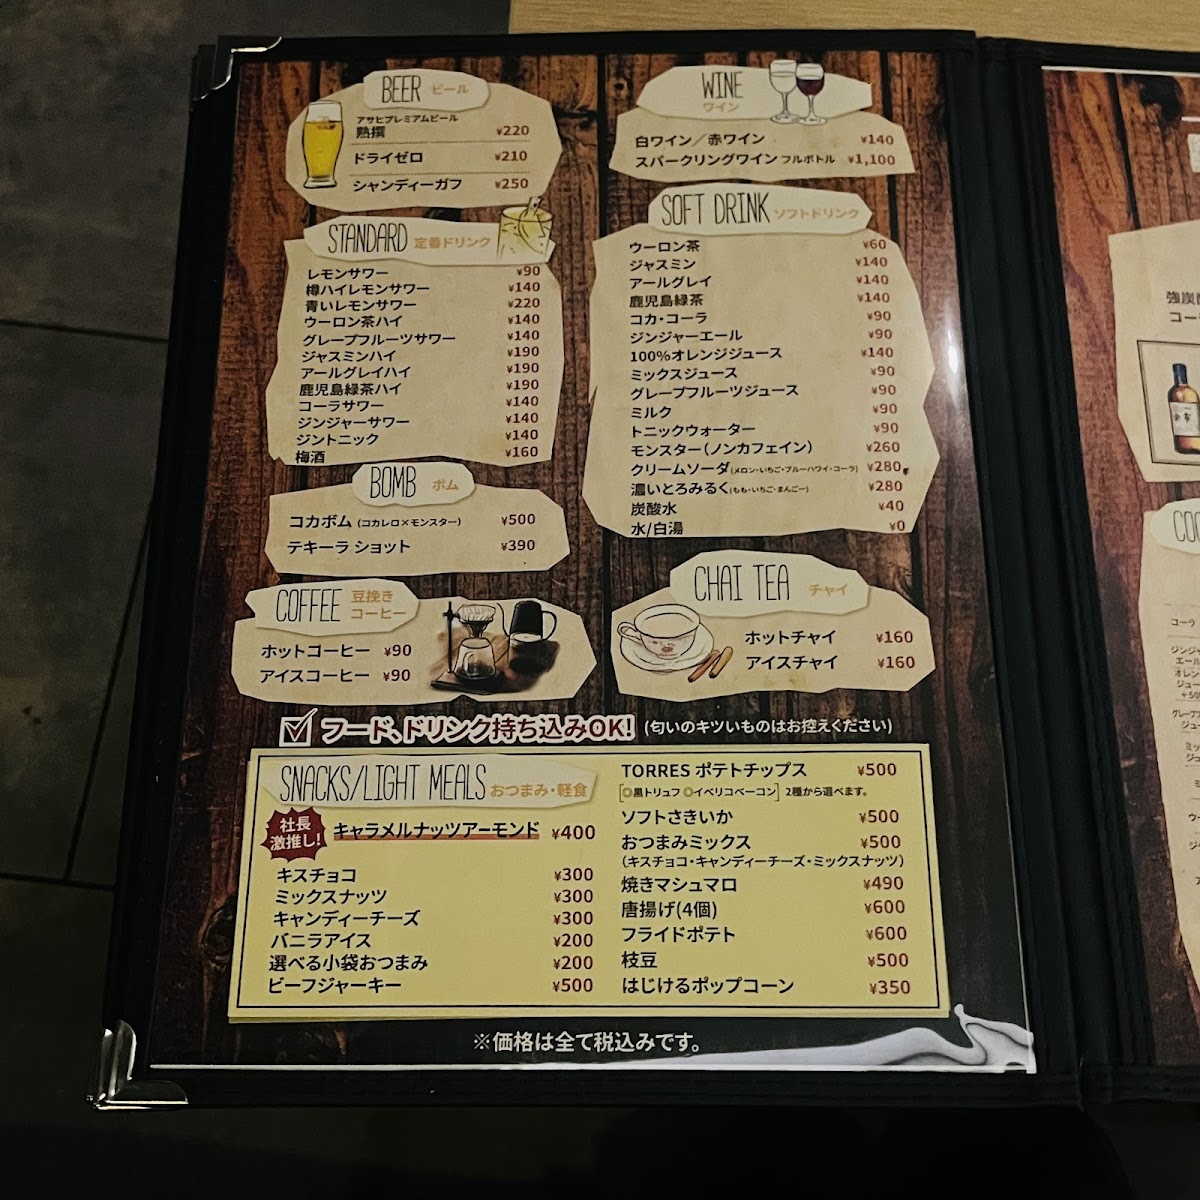 BEER ビール
アサヒプレミアムビール
熟撰 ¥220
ドライゼロ ¥210
シャンディーガフ ¥250
STANDARD 定番ドリンク
レモンサワー ¥90
樽ハイレモンサワー ¥140
青いレモンサワー ¥220
ウーロン茶ハイ ¥140
グレープフルーツサワー ¥140
ジャスミンハイ ¥190
アールグレイハイ ¥190
鹿児島緑茶ハイ ¥190
コーラサワー ¥140
ジンジャーサワー ¥140
ジントニック ¥140
梅酒 ¥160
BOMB ボム
コカボム (コカレロ×モンスター) ¥500
テキーラ ショット ¥390
COFFEE 豆挽き
コーヒー
ホットコーヒー ¥90
アイスコーヒー ¥90
WINE
ワイン
白ワイン／赤ワイン ¥140
スパークリングワイン フルボトル ¥1,100
SOFT DRINK ソフトドリンク
ウーロン茶 ¥60
ジャスミン ¥140
アールグレイ ¥140
鹿児島緑茶 ¥140
コカ・コーラ ¥90
ジンジャーエール ¥90
100%オレンジジュース ¥140
ミックスジュース ¥90
グレープフルーツジュース ¥90
ミルク ¥90
トニックウォーター ¥90
モンスター(ノンカフェイン) ¥260
クリームソーダ(メロン・いちご・ブルーハワイ・コーラ) ¥280
濃いとろみるく(もも・いちご・まんごー) ¥280
炭酸水 ¥40
水/白湯 ¥0
CHAI TEA チャイ
ホットチャイ ¥160
アイスチャイ ¥160
フード、ドリンク持ち込みOK! (匂いのキツいものはお控えください)
SNACKS/LIGHT MEALS おつまみ・軽食
社長
激推し!
キャラメルナッツアーモンド ¥400
キスチョコ ¥300
ミックスナッツ ¥300
キャンディーチーズ ¥300
バニラアイス ¥200
選べる小袋おつまみ ¥200
ビーフジャーキー ¥500
TORRES ポテトチップス ¥500
[◎黒トリュフ ◎イベリコベーコン] 2種から選べます。
ソフトさきいか ¥500
おつまみミックス ¥500
(キスチョコ・キャンディーチーズ・ミックスナッツ)
焼きマシュマロ ¥490
唐揚げ(4個) ¥600
フライドポテト ¥600
枝豆 ¥500
はじけるポップコーン ¥350
※価格は全て税込みです。
強炭酸
コー
コーラ